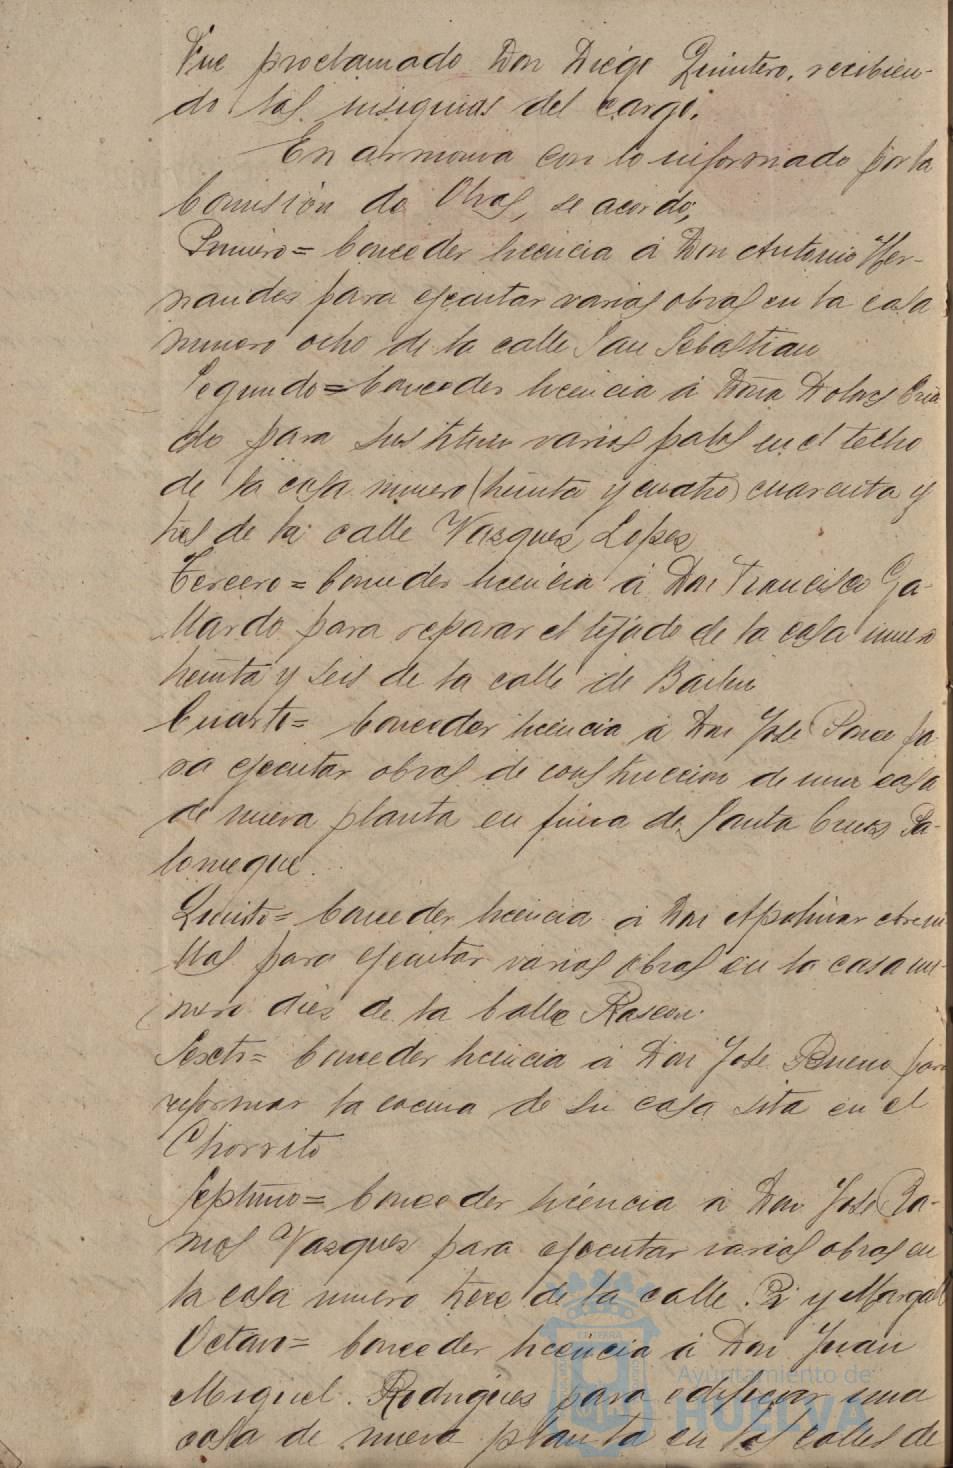 Fue proclamado Don Diego Quintero, recibien-
do las insignias del cargo.
En armonia con lo informado por la
Comisión de Obras, se acordó;
Primero = Conceder licencia á Don Antonio Her-
nandes para ejecutar varias obras en la casa
numero ocho de la calle San Sebastian
Segundo = Conceder licencia á Doña Dolores Cria
do para sustituir varios palos en el techo
de la casa numero (treinta y cuatro) cuarenta y
tres de la calle Vazques Lopez
Tercero = Conceder licencia á Don Francisco Ga-
llardo para reparar el tejado de la casa numero
treinta y seis de la calle de Bailen
Cuarto = Conceder licencia á Don José Ponce pa-
ra ejecutar obras de construccion de una casa
de nueva planta en finca de Santa Cruz Pa-
lomeque.
Quinto = Conceder licencia á Don Apolinar Areni
llas para ejecutar varias obras en la casa nu-
mero dies de la Calle Rascon.
Sexto = Conceder licencia á Don José Bueno para
reformar la cocina de su casa sita en el
Chorrito
Septimo = Conceder licencia á Don José Ra-
mos Vazques para ejecutar varias obras en
la casa numero trece de la calle Pi y Margall
Octavo = Conceder licencia á Don Juan
Miguel Rodrigues para edificar una
casa de nueva planta en las calles de
Ayuntamiento de
HUELVA